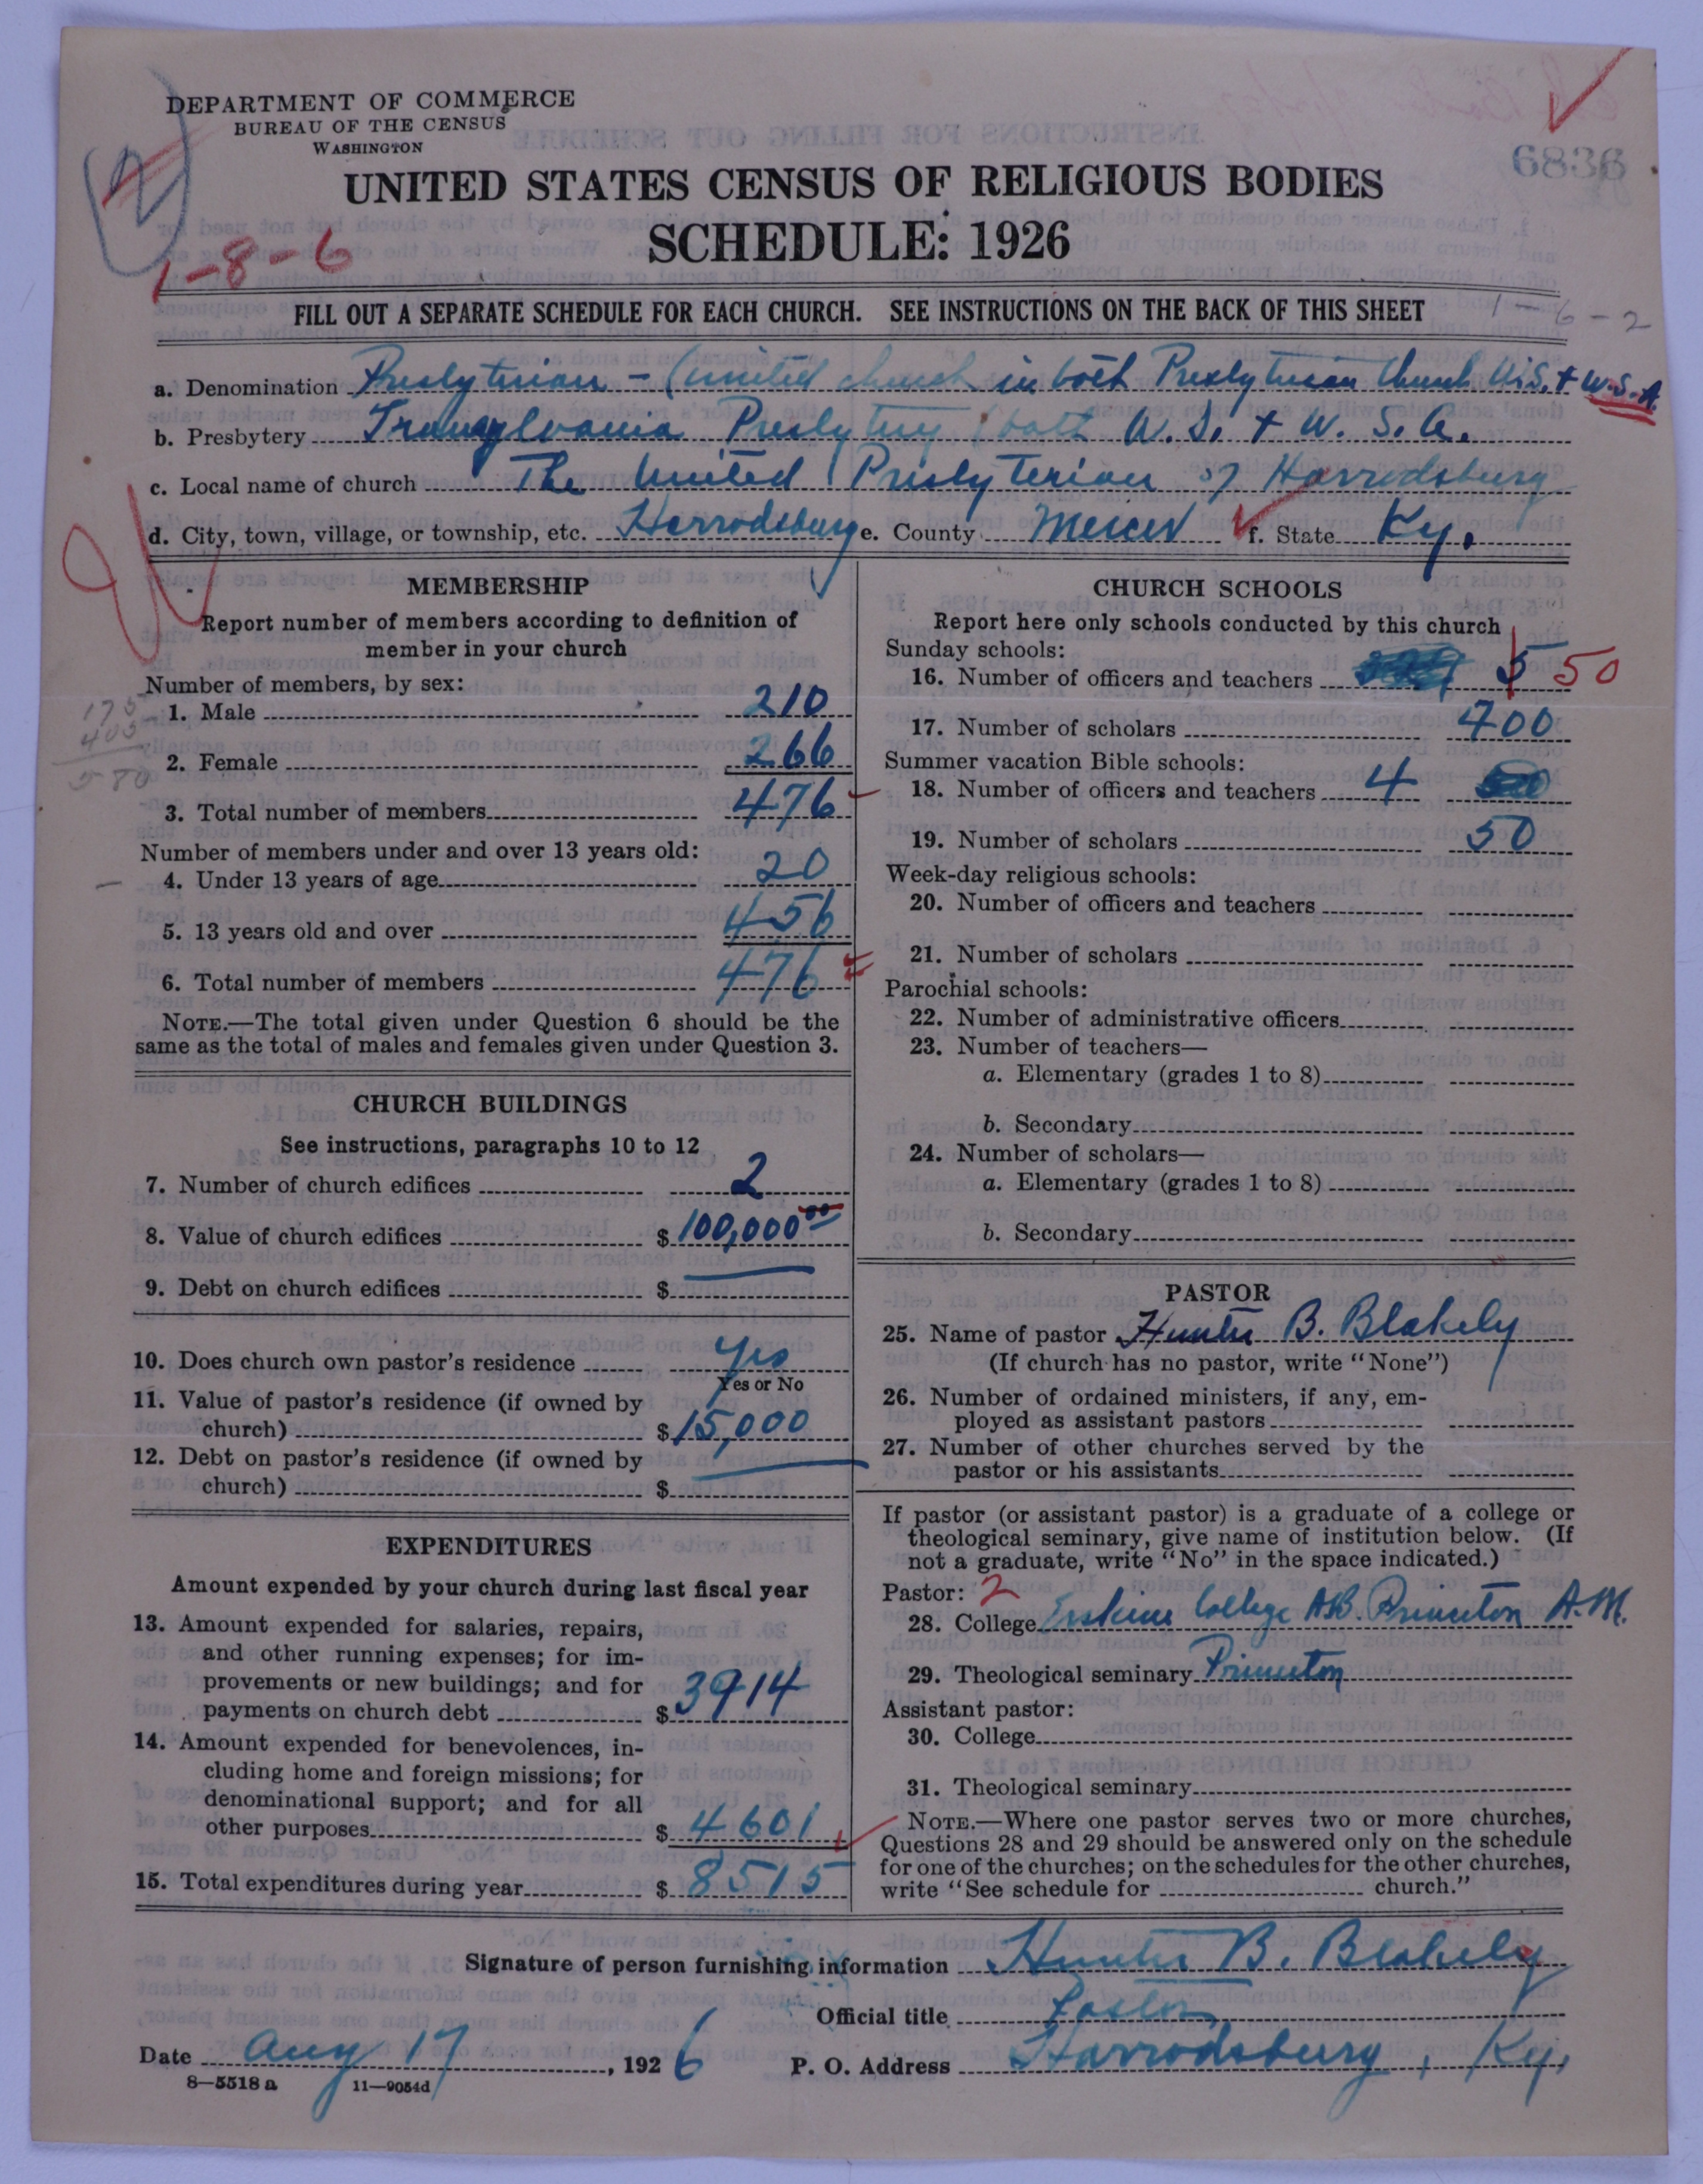 DEPARTMENT OF COMMERCE
BUREAU OF THE CENSUS
WASHINGTON
6836
UNITED STATES CENSUS OF RELIGIOUS BODIES
SCHEDULE: 1926
1-8-6
FILL OUT A SEPARATE SCHEDULE FOR EACH CHURCH. SEE INSTRUCTIONS ON THE BACK OF THIS SHEET
1-6-2
a. Denomination Presbyterian - (united church in both Presbyterian Church U.S. + U.S.A.
b. Presbytery Transylvania Presbytery (both U.S. + U.S.A.
c. Local name of church The United Presbyterian of Harrodsburg
d. City, town, village, or township, etc. Harrodsburg e. County Mercer f. State Ky.
MEMBERSHIP
Report number of members according to definition of
member in your church
Number of members, by sex:
175
405
580
1. Male 210
2. Female 266
3. Total number of members 476
Number of members under and over 13 years old:
4. Under 13 years of age 20
5. 13 years old and over 456
6. Total number of members 476
NOTE.—The total given under Question 6 should be the
same as the total of males and females given under Question 3.
CHURCH BUILDINGS
See instructions, paragraphs 10 to 12
7. Number of church edifices 2
8. Value of church edifices $ 100,000 00
9. Debt on church edifices $
10. Does church own pastor's residence Yes
Yes or No
11. Value of pastor's residence (if owned by
church) $ 15,000
12. Debt on pastor's residence (if owned by
church) $
EXPENDITURES
Amount expended by your church during last fiscal year
13. Amount expended for salaries, repairs,
and other running expenses; for im-
provements or new buildings; and for
payments on church debt $ 3914
14. Amount expended for benevolences, in-
cluding home and foreign missions; for
denominational support; and for all
other purposes $ 4601
15. Total expenditures during year $ 8515
CHURCH SCHOOLS
Report here only schools conducted by this church
Sunday schools:
16. Number of officers and teachers 5 50
17. Number of scholars 400
Summer vacation Bible schools:
18. Number of officers and teachers 4
19. Number of scholars 50
Week-day religious schools:
20. Number of officers and teachers
21. Number of scholars
Parochial schools:
22. Number of administrative officers
23. Number of teachers—
a. Elementary (grades 1 to 8)
b. Secondary
24. Number of scholars—
a. Elementary (grades 1 to 8)
b. Secondary
PASTOR
25. Name of pastor Hunter B. Blakely
(If church has no pastor, write "None")
26. Number of ordained ministers, if any, em-
ployed as assistant pastors
27. Number of other churches served by the
pastor or his assistants
If pastor (or assistant pastor) is a graduate of a college or
theological seminary, give name of institution below. (If
not a graduate, write "No" in the space indicated.)
Pastor: 2
28. College Erskine College A.B. Princeton A.M.
29. Theological seminary Princeton
Assistant pastor:
30. College
31. Theological seminary
NOTE.—Where one pastor serves two or more churches,
Questions 28 and 29 should be answered only on the schedule
for one of the churches; on the schedules for the other churches,
write "See schedule for church."
Signature of person furnishing information Hunter B. Blakely
Official title Pastor
Date Aug 17, 1926 P. O. Address Harrodsburg, Ky.
8—5518 a 11—9054d